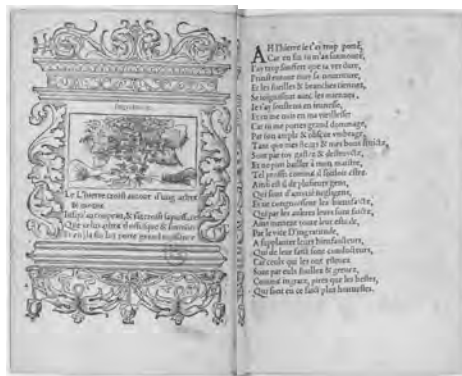 Ingratitude.
Le L'hierre croist autour d'ung arbre
Et monte
Jusqu'au coupeau, & s'accroist
Que celuy
Et en la fin luy porte grand
AH l'hierre je t'ay trop porté,
Car en fin tu m'as surmonté,
J'ay trop souffert que ta verdure,
Print entour moy sa nourriture,
Et les fueilles & branches tiennes,
Se joignissent avec les miennes,
Je t'ay soustenu en jeunesse,
Et tu me nuis en ma vieillesse
Car tu me portes grand dommage,
Par ton ample & obscur umbrage,
Tant que mes fleurs & mes bons fruictz,
Sont par toy gastez & destruictz,
Et ne puis bailler à mon maistre,
Tel proffit comme d'
Ainsi est il de plusieurs gens,
Qui sont d'amitié negligens,
Et ne congnoissent les bienfaictz,
Qui par les aultres leurs sont faictz,
Ains mettent toute leur estude,
Par le vice D'ingratitude,
A supplanter leurs bienfaicteurs,
Qui de leur faict sont conducteurs,
Car ceulx qui les ont
Sont par eulx foullez & grevez,
Comme ingratz, pires que les bestes,
Qui sont en ce faict plus honnestes.